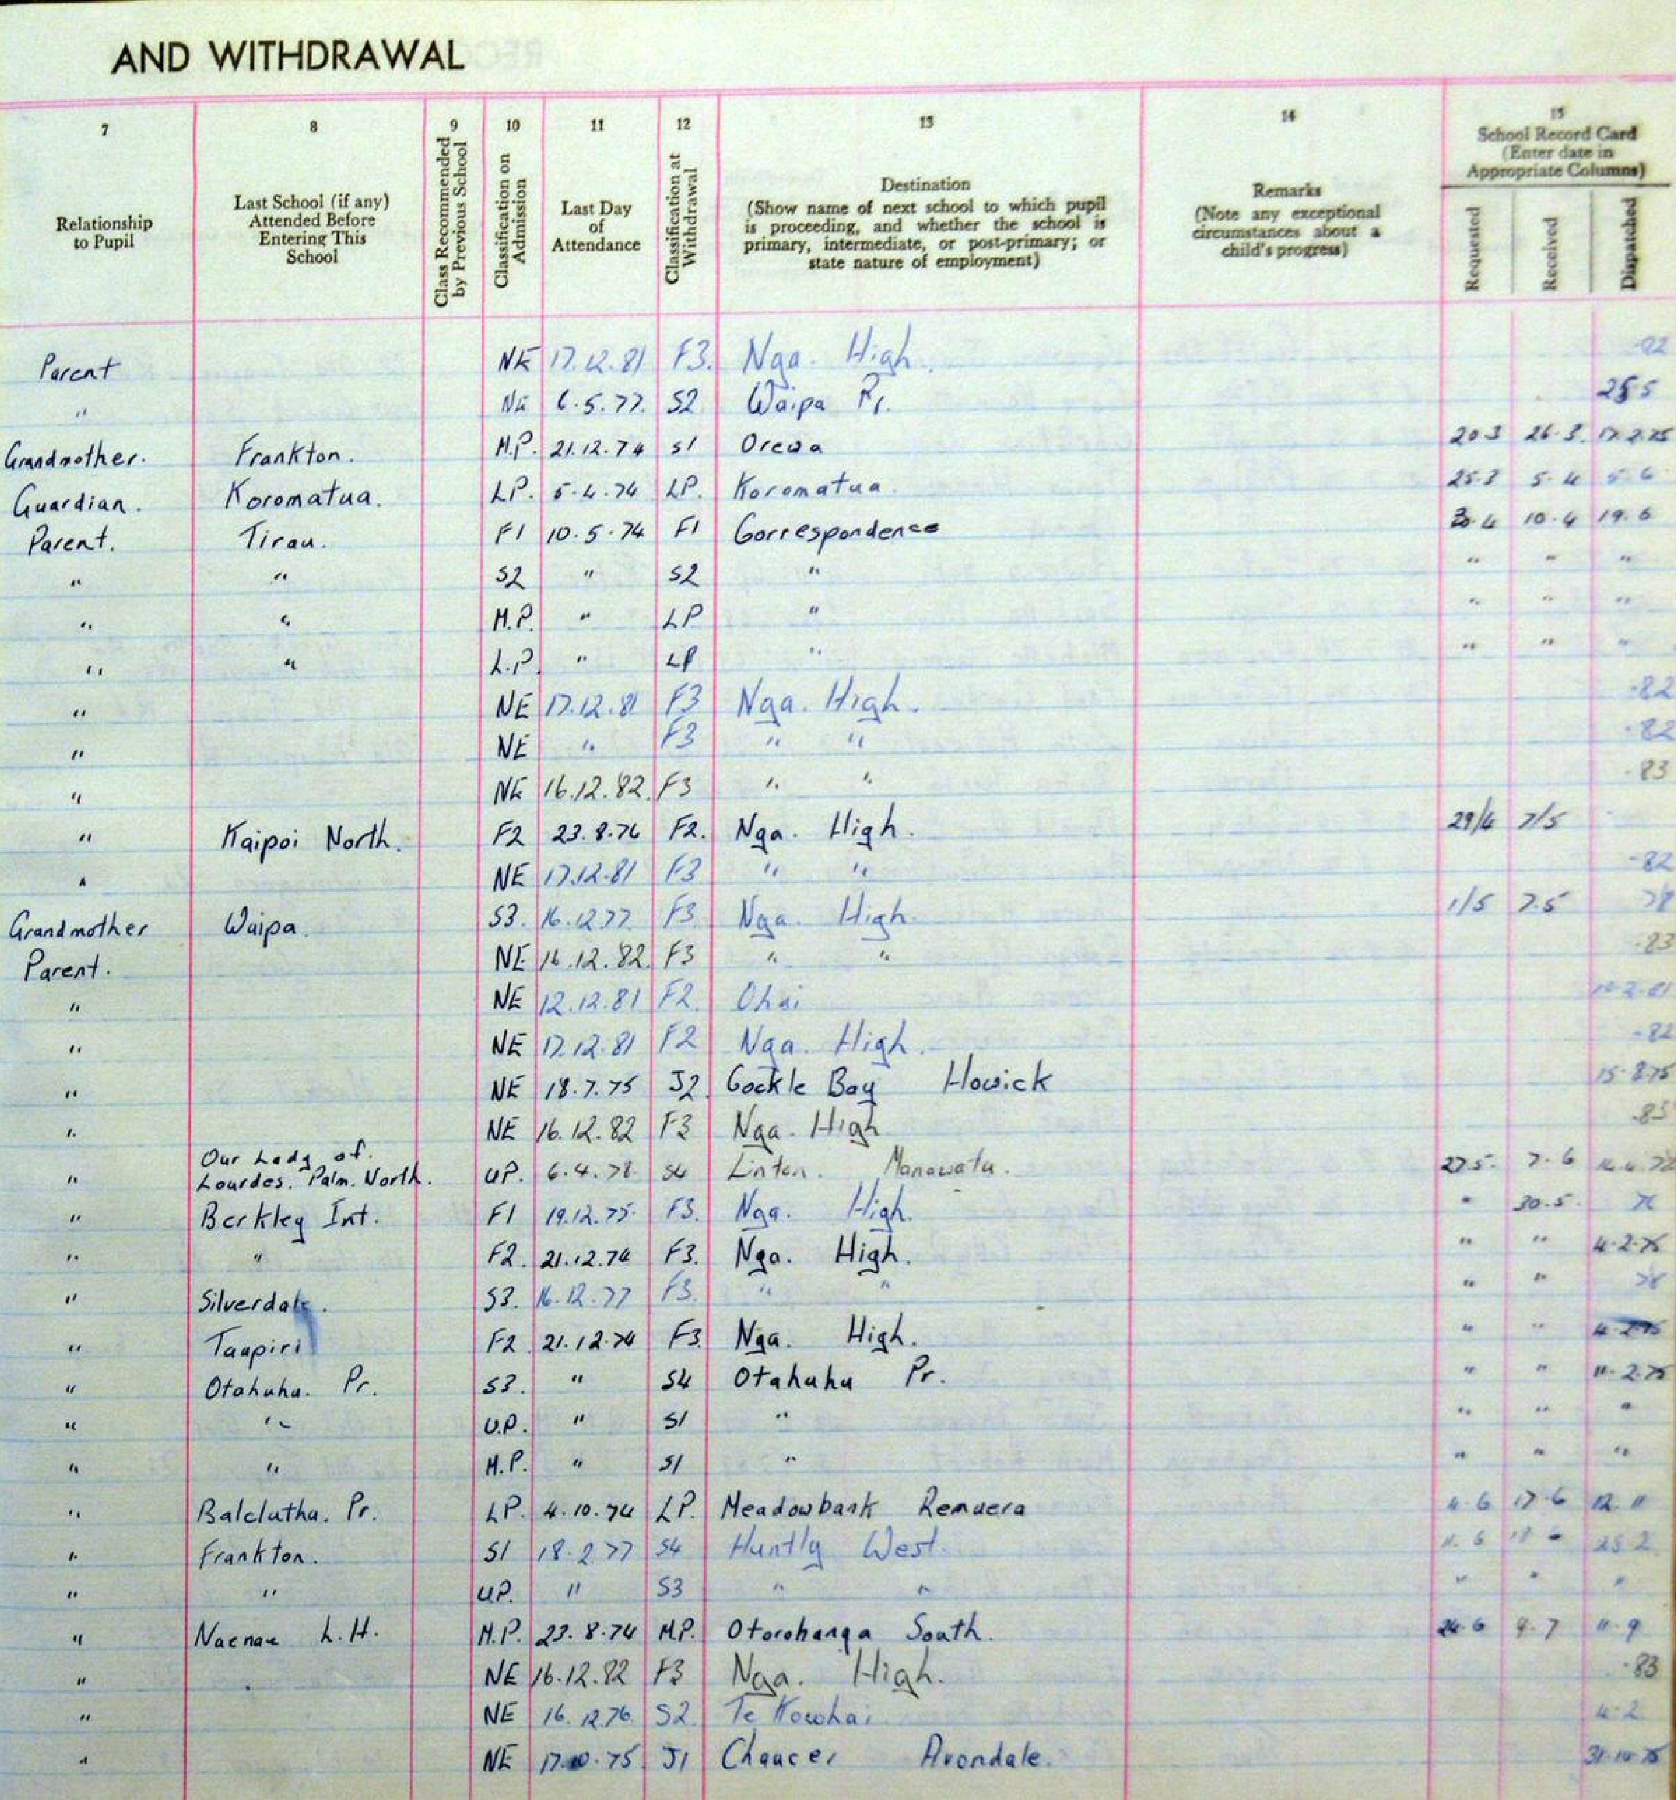 AND WITHDRAWAL
7 8 9 10 11 12 13 14 15
Relationship to Pupil
Last School (if any) Attended Before Entering This School
Class Recommended by Previous School
Classification on Admission
Last Day of Attendance
Classification at Withdrawal
Destination (Show name of next school to which pupil is proceeding, and whether the school is primary, intermediate, or post-primary; or state nature of employment)
Remarks (Note any exceptional circumstances about a child's progress)
School Record Card (Enter date in Appropriate Columns)
Requested Received Dispatched
Parent NE 17.12.81 F3. Nga. High. -82
" NE 6.5.77. S2 Waipa Pr. 25 5
Grandmother. Frankton. M.P. 21.12.74 S1 Orewa 20 3 26.3. 17.2.75
Guardian. Koromatua. LP. 5.4.74 LP. Koromatua. 25.3 5.4 5 6
Parent. Tirau. F1 10.5.74 F1 Correspondence 30.4 10.4 19.6
" " S2 " S2 " " " "
" " M.P. " LP " " " "
" " L.P. " LP " " " "
" NE 17.12.81 F3 Nga. High. -82
" NE " F3 " " -82
" NE 16.12.82. F3 " " -83
" Kaipoi North. F2 23.8.76 F2. Nga. High. 29/4 7/5
" NE 17.12.81 F3 " " -82
Grandmother Waipa. S3. 16.12.77 F3. Nga. High. 1/5 7.5 78
Parent. NE 16.12.82. F3 " " -83
" NE 12.12.81 F2. Ohai
" NE 17.12.81 F2 Nga. High. -82
" NE 18.7.75 J2. Cockle Bay Howick 15.8.75
" NE 16.12.82 F3 Nga. High
Our Lady of.
" Lourdes. Palm. North. UP. 6.4.78 S4 Linton. Manawatu. 27.5. 7.6
" Berkley Int. F1 19.12.75. F3. Nga. High. " 30.5. 76
" " F2. 21.12.74 F3. Nga. High. " " 4.2.75
" Silverdale. S3. 16.12.77 F3. " " " " 78
" Taupiri F2 21.12.74 F3. Nga. High. " " 4.2.75
" Otahuhu. Pr. S3. " S4 Otahuhu Pr. " " 11.2.75
" " U.P. " S1 " " " "
" " M.P. " S1 " " " "
" Balclutha. Pr. LP. 4.10.74 LP. Meadowbank Remuera 4.6 17.6 12.11
" Frankton. S1 18.2.77 S4 Huntly West. 25 2
" " UP. " S3 " " " " "
" Naenae L.H. M.P. 23.8.74 M.P. Otorohanga South. 24.6 9.7 11.9
" NE 16.12.82 F3 Nga. High. -83
" NE 16.12.76. S2 Te Kowhai 4.2
" NE 17.10.75 J1 Chaucer Avondale. 31.10.75